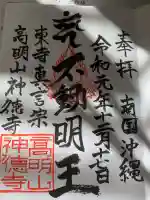 奉拝 南国沖縄
令和元年十二月十七日
不動明王
東寺真言宗
高明山神徳寺
高明山
神徳寺